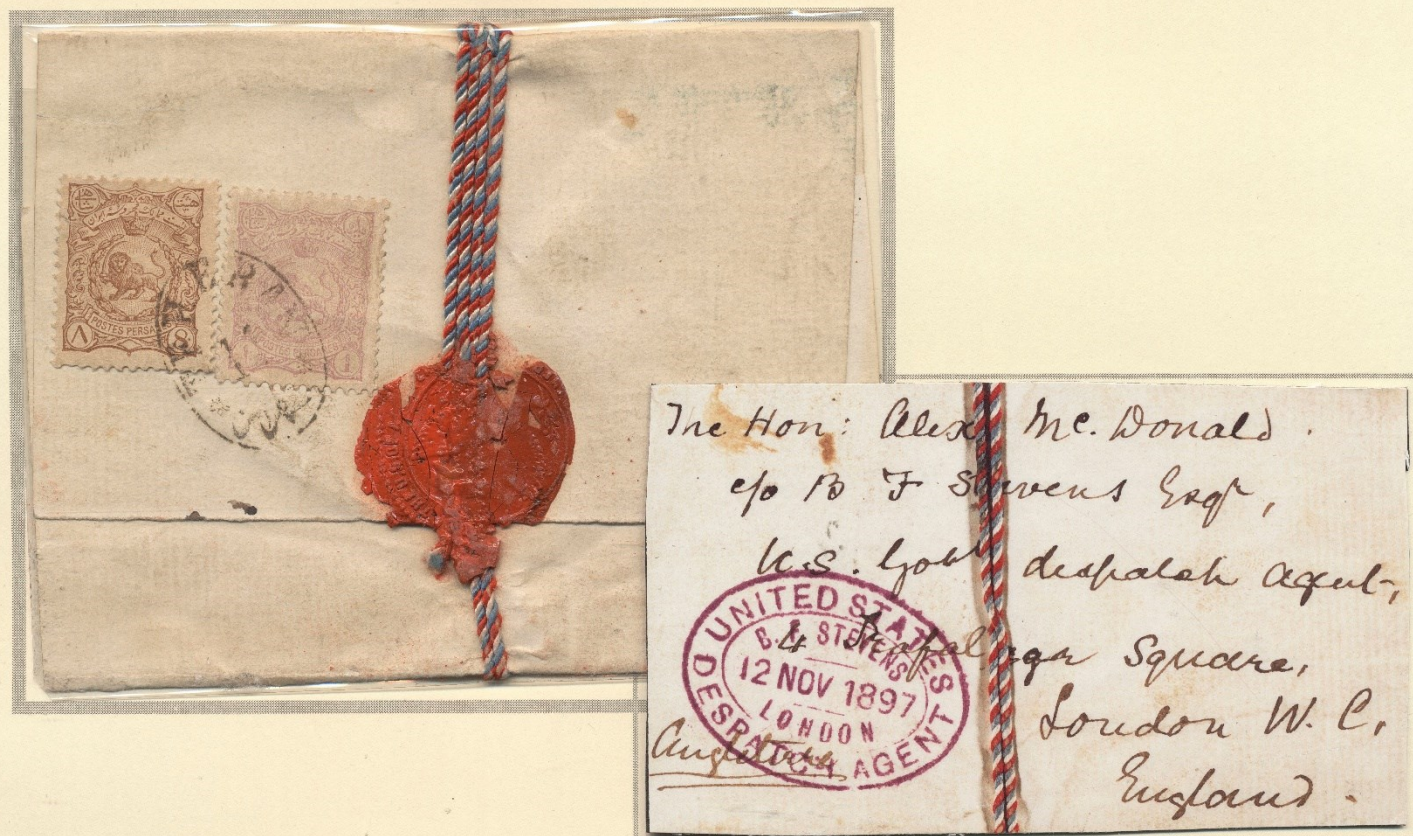 POSTES PERSA
٨ 8
TEHERAN
The Hon: Alex Mc. Donald.
c/o B F Stevens Esqr,
U.S. Govt despatch agent,
4 Trafalgar Square,
London W. C.
England.
Angleterre
UNITED STATES
B. F. STEVENS
12 NOV 1897
LONDON
DESPATCH AGENT